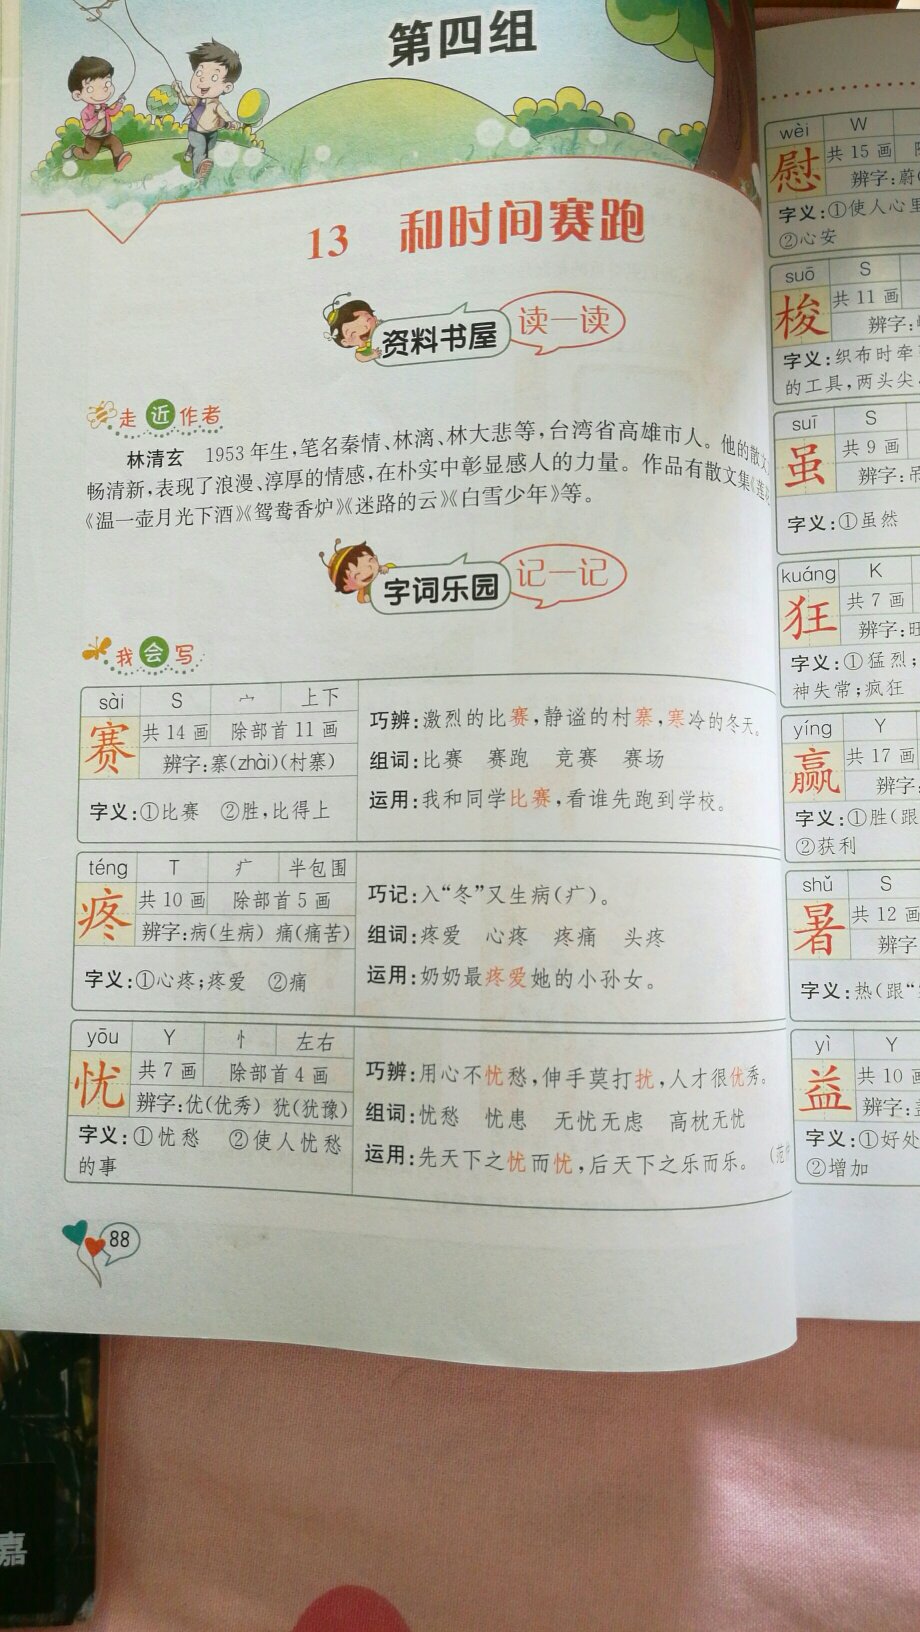 第四组
13 和时间赛跑
资料书屋 读一读
走近作者
林清玄 1953年生,笔名秦情、林漓、林大悲等,台湾省高雄市人。他的散文
畅清新,表现了浪漫、淳厚的情感,在朴实中彰显感人的力量。作品有散文集《莲
《温一壶月光下酒》《鸳鸯香炉》《迷路的云》《白雪少年》等。
字词乐园 记一记
我会写
sài S 宀 上下
赛 共14画 除部首11画
辨字:寨(zhài)(村寨)
字义:①比赛 ②胜,比得上
巧辨:激烈的比赛,静谧的村寨,寒冷的冬天。
组词:比赛 赛跑 竞赛 赛场
运用:我和同学比赛,看谁先跑到学校。
téng T 疒 半包围
疼 共10画 除部首5画
辨字:病(生病) 痛(痛苦)
字义:①心疼;疼爱 ②痛
巧记:入“冬”又生病(疒)。
组词:疼爱 心疼 疼痛 头疼
运用:奶奶最疼爱她的小孙女。
yōu Y 忄 左右
忧 共7画 除部首4画
辨字:优(优秀) 犹(犹豫)
字义:①忧愁 ②使人忧愁
的事
巧辨:用心不忧愁,伸手莫打扰,人才很优秀。
组词:忧愁 忧患 无忧无虑 高枕无忧
运用:先天下之忧而忧,后天下之乐而乐。(范
88
wèi W
慰 共15画
辨字:蔚(
字义:①使人心里
②心安
suō S
梭 共11画
辨字:
字义:织布时牵
的工具,两头尖
suī S
虽 共9画
辨字:吊
字义:①虽然
kuáng K
狂 共7画
辨字:旺
字义:①猛烈;
神失常;疯狂
yíng Y
赢 共17画
辨字:
字义:①胜(跟
②获利
shǔ S
暑 共12画
辨字
字义:热(跟“
yì Y
益 共10画
辨字:
字义:①好处
②增加
嘉